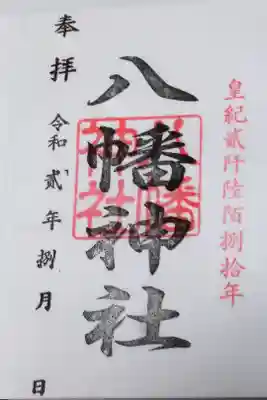 皇紀貳阡陸陌捌拾年
八幡神社
八幡神社
奉拝
令和貳年捌月 日